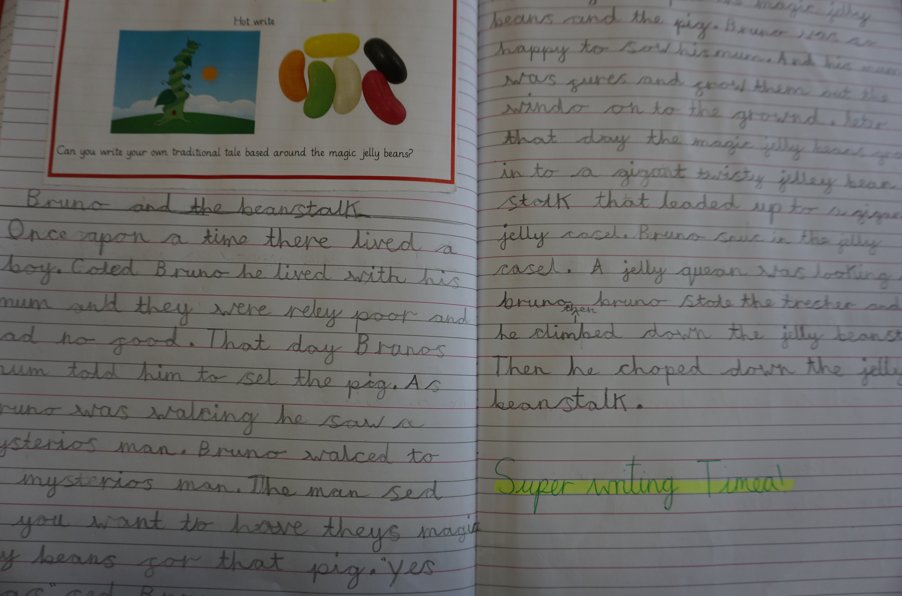 Hot write
Can you write your own traditional tale based around the magic jelly beans?
Bruno and the beanstalk
Once apon a time there lived a
boy. Coled Bruno he lived with his
mum and they were reley poor and
ad no good. That day Brunos
mum told him to sel the pig. As
runo was walcing he saw a
ysterios man. Bruno walced to
mysterios man. The man sed
you want to have theys magic
y beans for that pig. "Yes
magic jelly
beans and the pig. Bruno was so
happy to sow his mum. And his mum
was fures and frow them out the
windo on to the grownd. later
that day the magic jelly beans
in to a gigant twisty jelley bean
stalk that leaded up to a
jelly casel. Bruno in the jelly
casel. A jelly quean was looking
bruno then bruno stole the trecher and
he climbed down the jelly beanst
Then he choped down the jelly
beanstalk.
Super writing Timea!